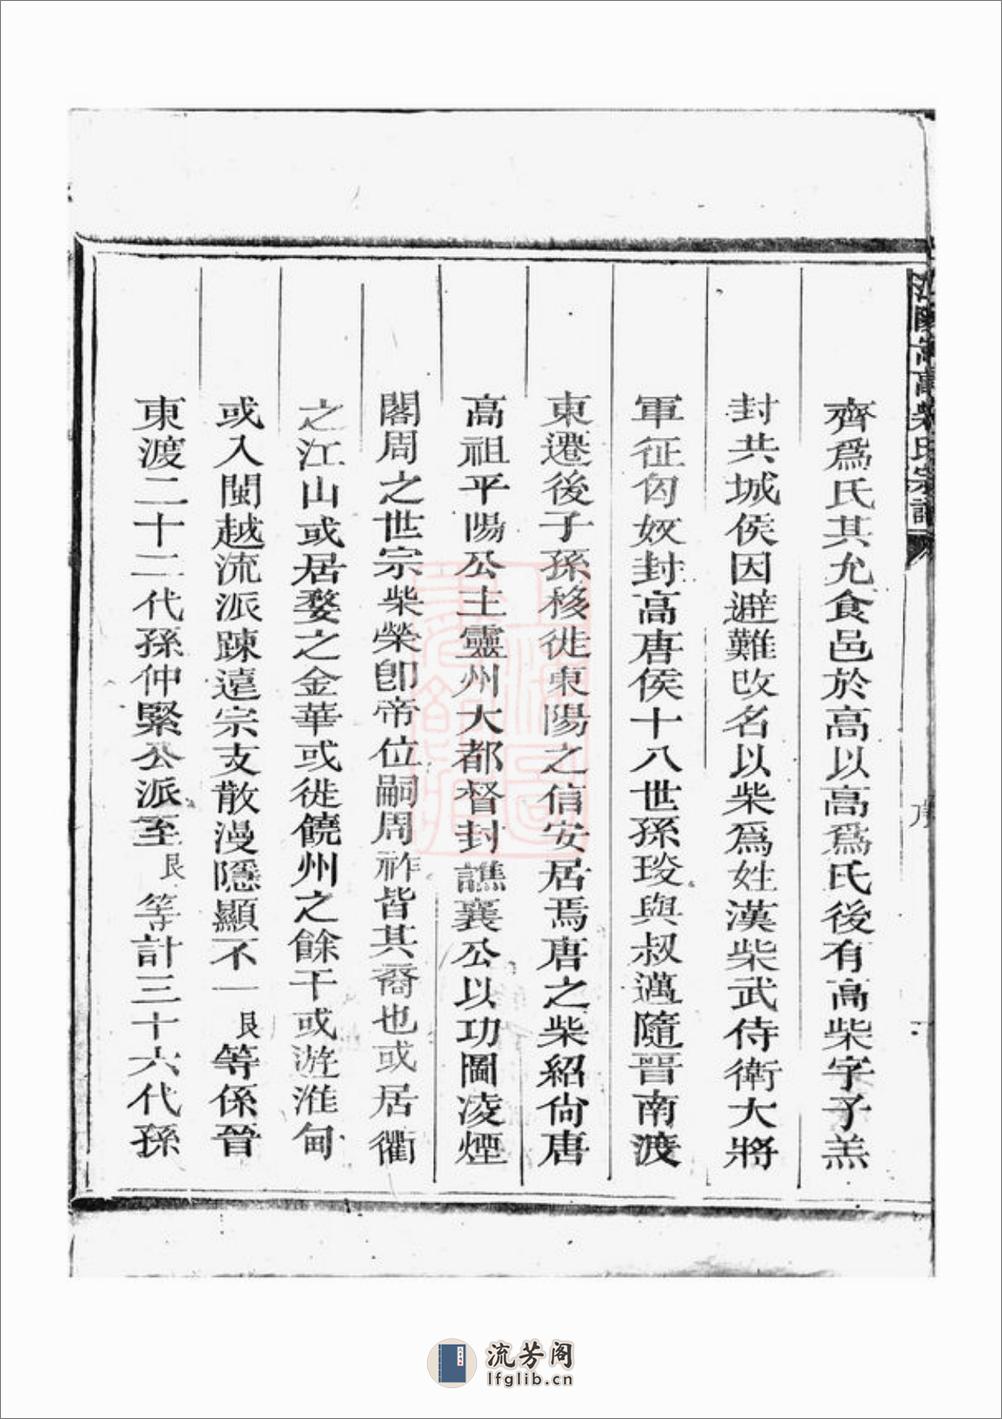 齊爲氏其允食邑於高以高爲氏後有高柴字子羔
封共城侯因避難改名以柴爲姓漢柴武侍衛大將
軍征匈奴封高唐侯十八世孫琰與叔邁隨晉南渡
東遷後子孫移徙東陽之信安居焉唐之柴紹尚唐
高祖平陽公主靈州大都督封譙襄公以功圖凌煙
閣周之世宗柴榮卽帝位嗣周祚皆其裔也或居衢
之江山或居婺之金華或徙饒州之餘干或遊淮甸
或入閩越流派踈遠宗支散漫隱顯不一艮等係晉
東渡二十二代孫仲緊公派至艮等計三十六代孫
柴氏宗譜
序
流芳阁
lfglib.cn